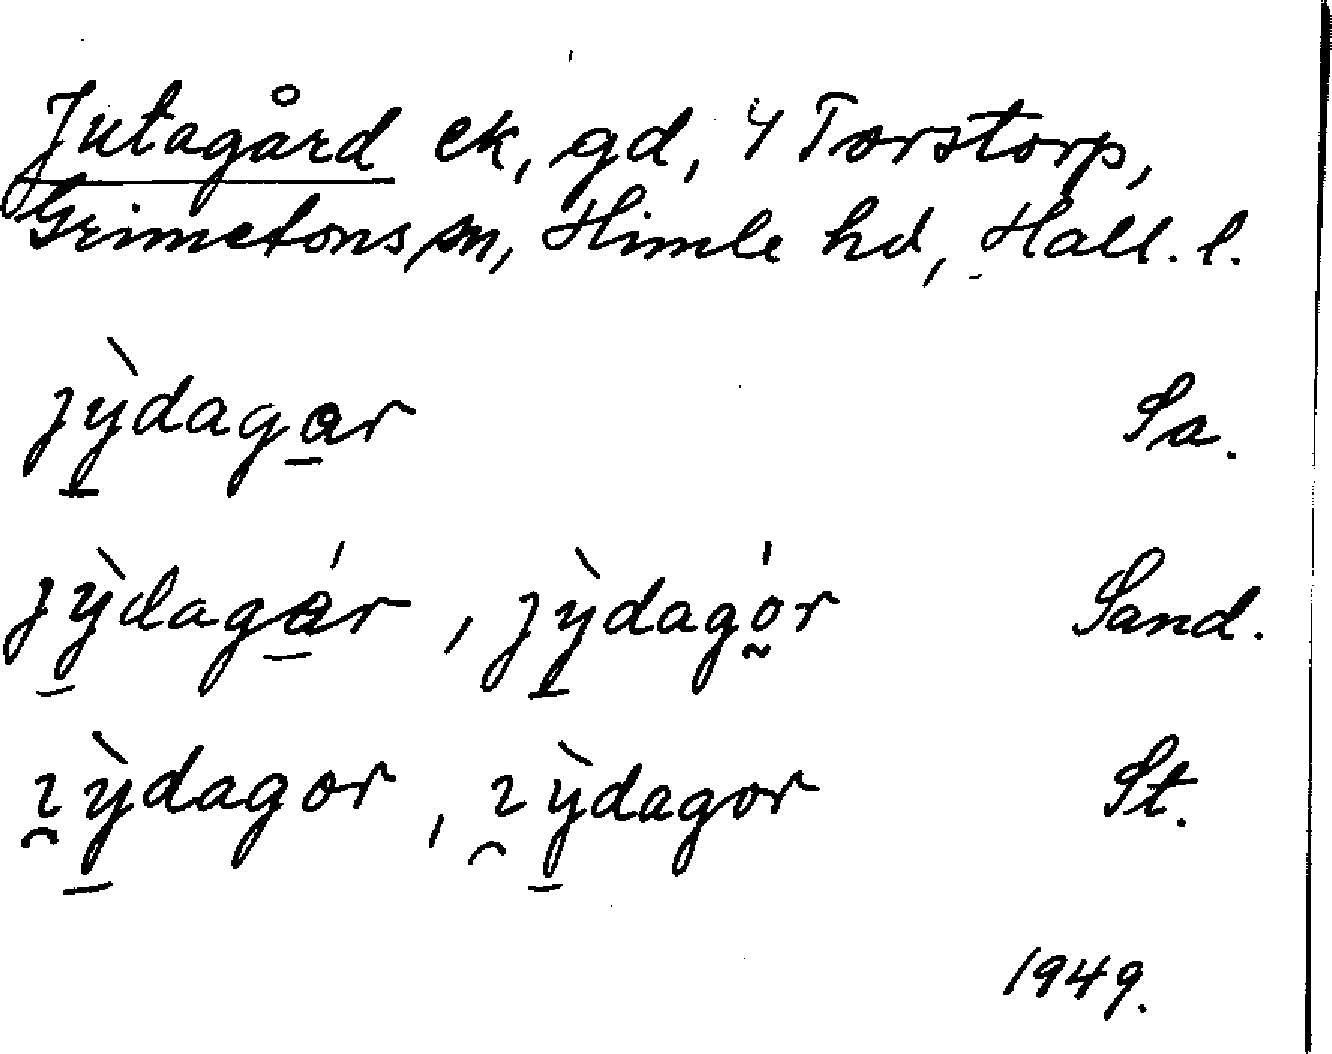 Jutagård ek, gd, 4 Torstorp,
Grimetons sn, Himle hd, Hall. l.
jỳ̲daga̲r Sa.
jỳ̲dagá̲r, jỳ̲dagó̰r Sand.
ɿ̯ỳ̲dagor, ɿ̯ỳ̲dagor St.
1949.